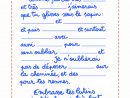 et très j'aimerais
que tu glisses sous le sapin :
et
et puis et surtout
avoir
pour
sans oublier
et je n'oublierai
pas de déposer sur
la cheminée et des
pour tes rennes.
Embrasse tes lutins